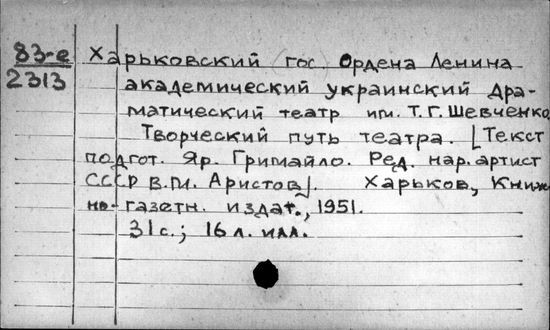 83-е Харьковский (гос) Ордена Ленина
2313 академический украинский дра-
матический театр им. Т.Г. Шевченко
Творческий путь театра. [Текст
подгот. Яр. Гримайло. Ред. нар. артист
СССР В.И. Аристов]. Харьков, Книж
но-газетн. издат., 1951.
31 с.; 16 л. илл.